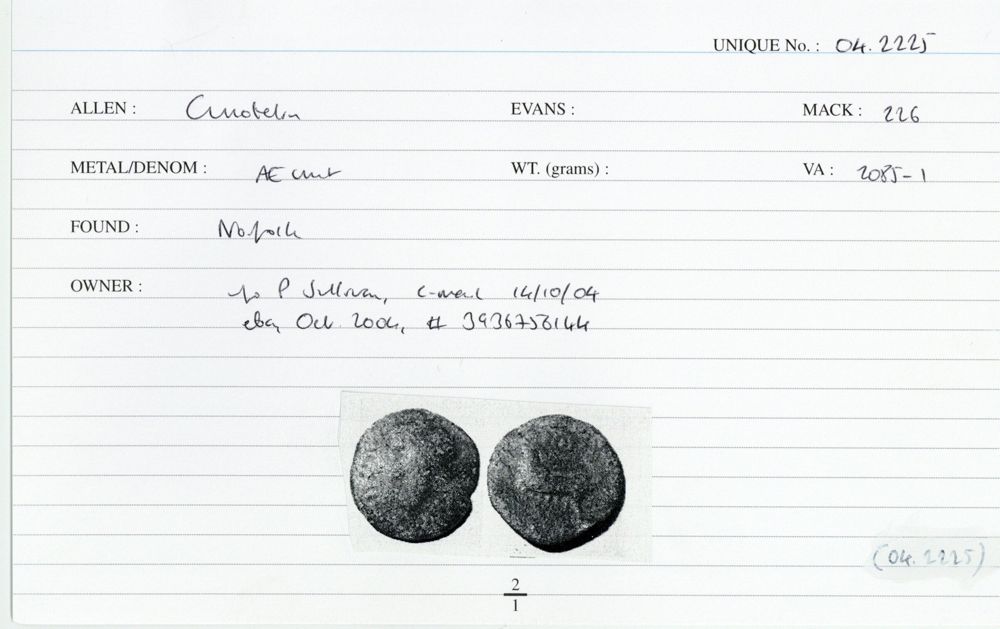 UNIQUE No. : 04.2225
ALLEN : Cunobelin EVANS : MACK : 226
METAL/DENOM : AE unit WT. (grams) : VA : 2085-1
FOUND : Norfolk
OWNER : P Sullivan, e-mail 14/10/04
ebay Oct. 2004, # 3936756144
2
1
(04.2225)